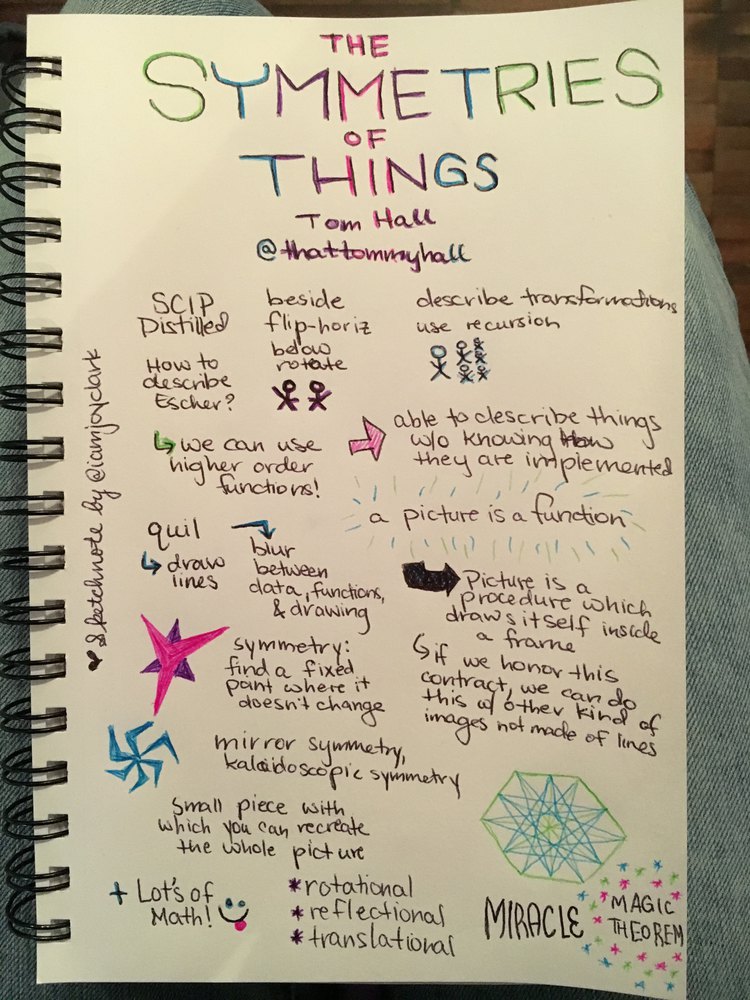 THE
SYMMETRIES
OF
THINGS
Tom Hall
@thattommyhall
SCIP
Distilled
How to
describe
Escher?
beside
flip-horiz
below
rotate
describe transformations
use recursion
we can use
higher order
functions!
able to describe things
w/o knowing how
they are implemented
a picture is a function
quil
draw
lines
blur
between
data, functions,
& drawing
Picture is a
procedure which
draws itself inside
a frame
if we honor this
contract, we can do
this w/ other kind of
images not made of lines
symmetry:
find a fixed
point where it
doesn't change
mirror symmetry,
kaleidoscopic symmetry
Small piece with
which you can recreate
the whole picture
+ Lot's of
Math!
*rotational
*reflectional
*translational
MIRACLE
MAGIC
THEOREM
♥ Sketchnote by @iamjoyclark